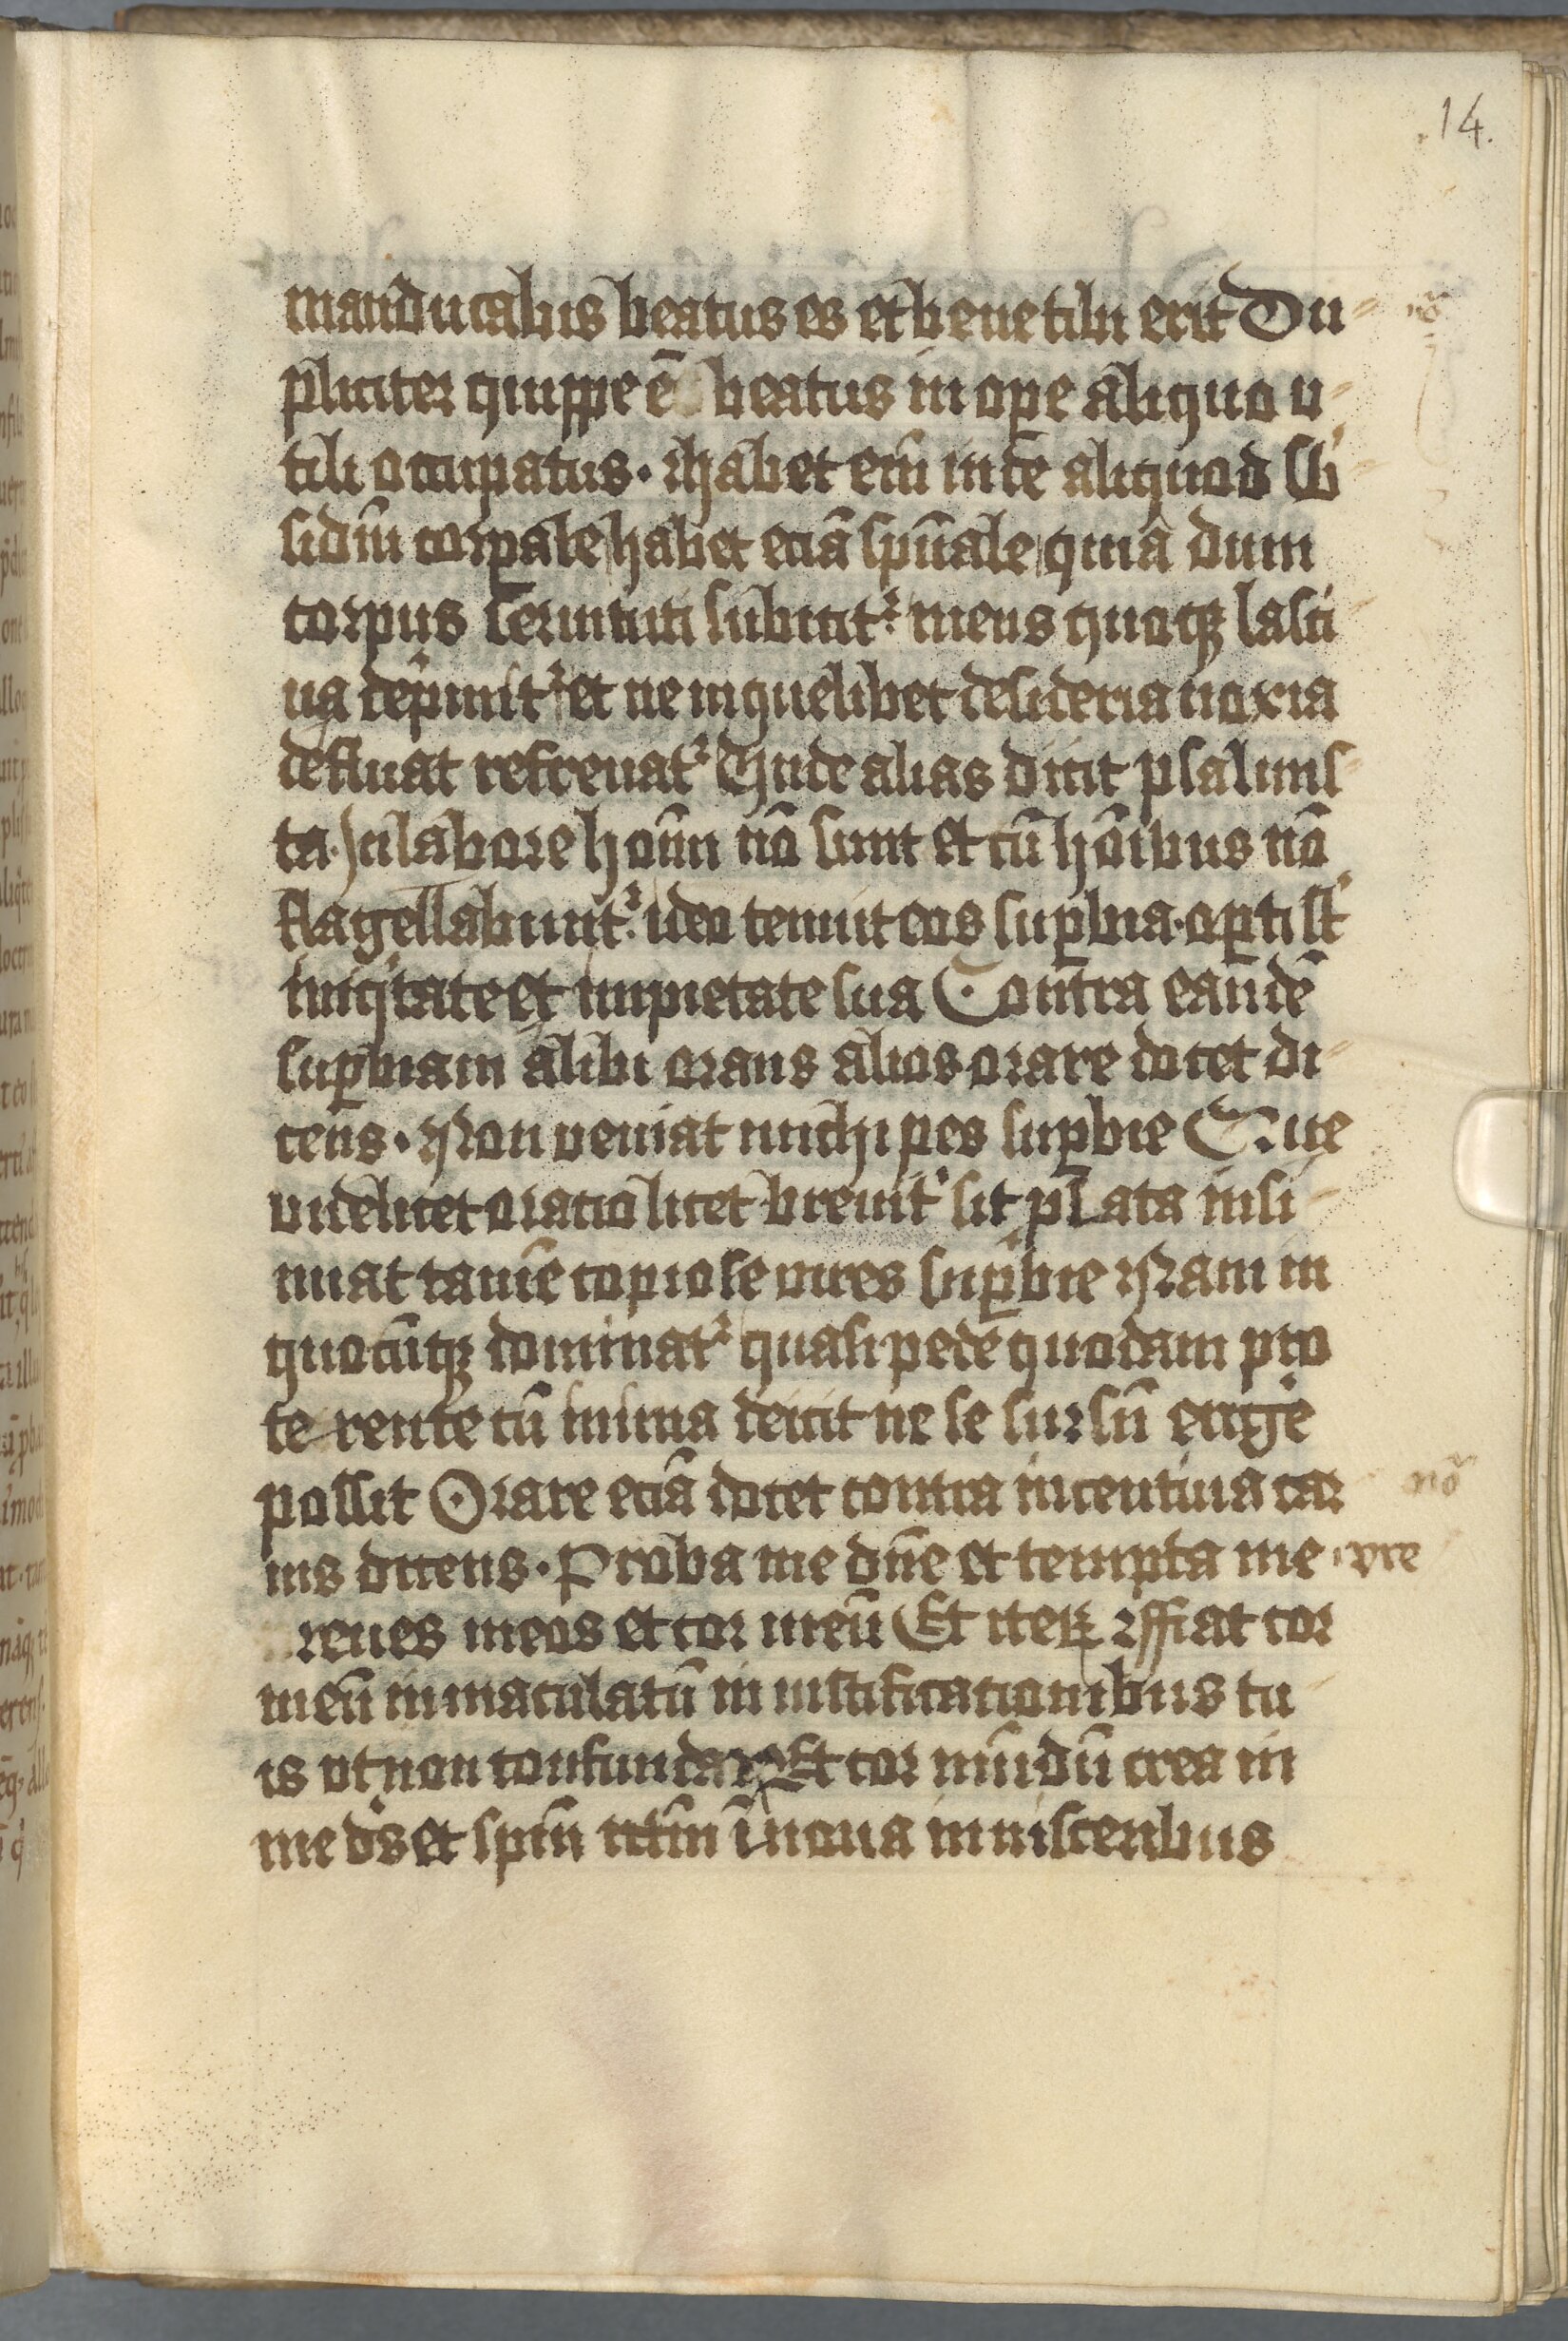 14.
manducabis beatus es et bene tibi erit Du-
pliciter quippe ē beatus in oꝑe aliquo v-
tili occupatus. Habet em̄ inde aliquod sb̄-
sidiū corꝑale habet eciā spūale quia dum
corpus seruituti subicit᷑ mens quoqꝫ lasci-
ua dep̄mit᷑ et ne in quelibet desideria noxia
defluat refrenat᷑ Unde alias dicit psalmis-
ta. In labore hoīm nō sunt et cū hoīibus nō
flagellabunt᷑. ideo tenuit eos suꝑbia. oꝑti st̄
iniq̇tate et impietate sua Contra eandē
suꝑbiam alibi orans alios orare docet di-
cens. Non veniat michi pes suꝑbie Que
videlicet oratio licet breuit̾ sit ꝓlata insi-
nuat tamē copiose vires suꝑbie Nam in
quocūqꝫ dominat᷑ quasi pede quodam pro
terente cū in ima deicit ne se sursū erige᷑
possit Orare eciā docet contra incentiua car
nis dicens. Proba me dn̄e et tempta me vre
renes meos et cor meū Et iteꝝ Fiat cor
meū immaculatū in iustificationibus tu
is vt non confundar Et cor mūdū crea in
me ds̄ et spm̄ rc̄m īnoua in visceribus
nō
nō